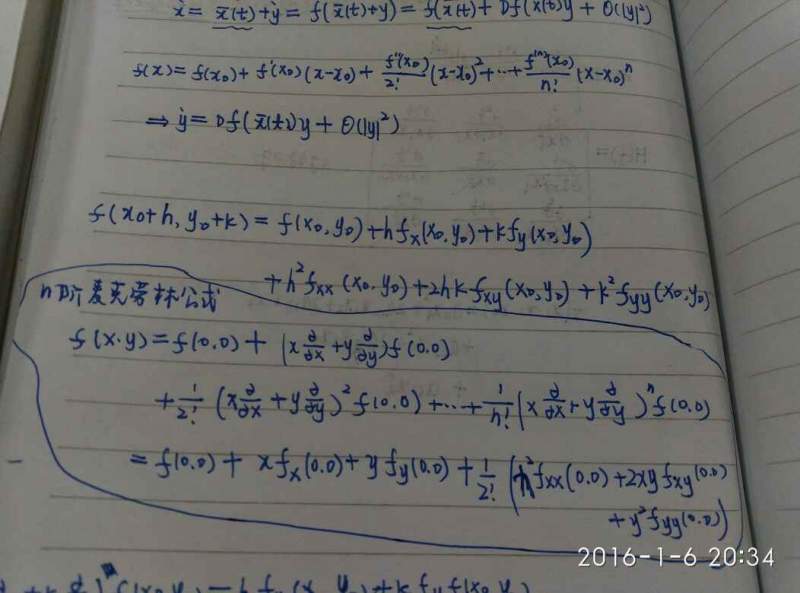 ẋ = ẋ̄(t) + ẏ = f(x̄(t)+y) = f(x̄(t)) + Df(x̄(t))y + O(|y|²)
f(x) = f(x₀) + f'(x₀)(x-x₀) + f''(x₀)/2! (x-x₀)² + ... + f⁽ⁿ⁾(x₀)/n! (x-x₀)ⁿ
⇒ ẏ = Df(x̄(t))y + O(|y|²)
f(x₀+h, y₀+k) = f(x₀,y₀) + hfx(x₀,y₀) + kfy(x₀,y₀)
+ h²fxx(x₀,y₀) + 2hkfxy(x₀,y₀) + k²fyy(x₀,y₀)
n阶麦克劳林公式
f(x·y) = f(0.0) + (x ∂/∂x + y ∂/∂y) f(0.0)
+ 1/2! (x ∂/∂x + y ∂/∂y)² f(0.0) + ... + 1/n! (x ∂/∂x + y ∂/∂y)ⁿ f(0.0)
= f(0.0) + xfx(0.0) + yfy(0.0) + 1/2! (h²fxx(0.0) + 2xyfxy(0.0)
+ y²fyy(0.0))
2016-1-6 20:34